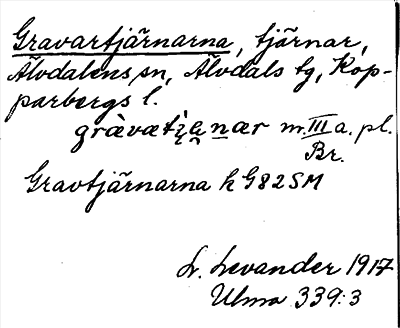 Gravartjärnarna, tjärnar,
Älvdalens sn, Älvdals tg, Kop-
parbergs l.
gràvætị̀e̮n̲ær m.III a. pl.
Br.
Gravtjärnarna k G82SM
L. Levander 1917
Ulma 339:3